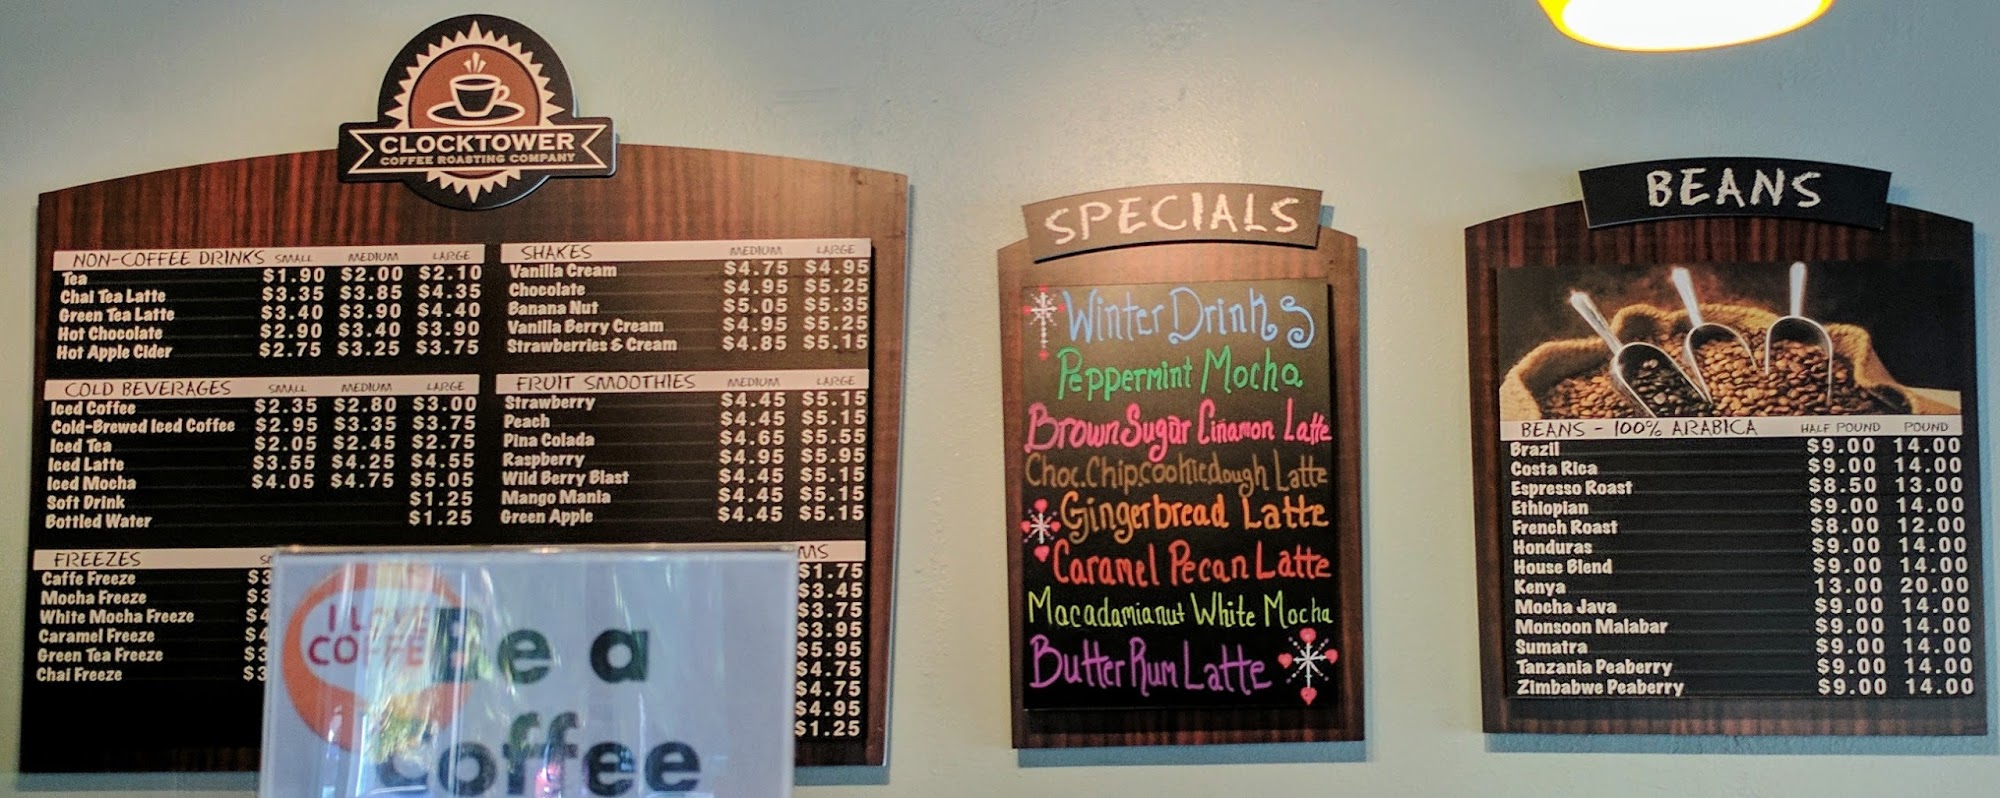 CLOCKTOWER
COFFEE ROASTING COMPANY
NON-COFFEE DRINKS SMALL MEDIUM LARGE
Tea $1.90 $2.00 $2.10
Chai Tea Latte $3.35 $3.85 $4.35
Green Tea Latte $3.40 $3.90 $4.40
Hot Chocolate $2.90 $3.40 $3.90
Hot Apple Cider $2.75 $3.25 $3.75
COLD BEVERAGES SMALL MEDIUM LARGE
Iced Coffee $2.35 $2.80 $3.00
Cold-Brewed Iced Coffee $2.95 $3.35 $3.75
Iced Tea $2.05 $2.45 $2.75
Iced Latte $3.55 $4.25 $4.55
Iced Mocha $4.05 $4.75 $5.05
Soft Drink $1.25
Bottled Water $1.25
FREEZES
Caffe Freeze $3
Mocha Freeze $3
White Mocha Freeze $4
Caramel Freeze $4
Green Tea Freeze $3
Chai Freeze $3
SHAKES MEDIUM LARGE
Vanilla Cream $4.75 $4.95
Chocolate $4.95 $5.25
Banana Nut $5.05 $5.35
Vanilla Berry Cream $4.95 $5.25
Strawberries & Cream $4.85 $5.15
FRUIT SMOOTHIES MEDIUM LARGE
Strawberry $4.45 $5.15
Peach $4.45 $5.15
Pina Colada $4.65 $5.55
Raspberry $4.95 $5.95
Wild Berry Blast $4.45 $5.15
Mango Mania $4.45 $5.15
Green Apple $4.45 $5.15
MS
$1.75
$3.45
$3.75
$3.95
$5.95
$4.75
$4.75
$4.95
$1.25
I LOVE
COFFEE
Be a
Coffee
SPECIALS
Winter Drinks
Peppermint Mocha
Brown Sugar Cinamon Latte
Choc.Chip.cookiedough Latte
Gingerbread Latte
Caramel Pecan Latte
Macadamianut White Mocha
Butter Rum Latte
BEANS
BEANS - 100% ARABICA HALF POUND POUND
Brazil $9.00 14.00
Costa Rica $9.00 14.00
Espresso Roast $8.50 13.00
Ethiopian $9.00 14.00
French Roast $8.00 12.00
Honduras $9.00 14.00
House Blend $9.00 14.00
Kenya 13.00 20.00
Mocha Java $9.00 14.00
Monsoon Malabar $9.00 14.00
Sumatra $9.00 14.00
Tanzania Peaberry $9.00 14.00
Zimbabwe Peaberry $9.00 14.00